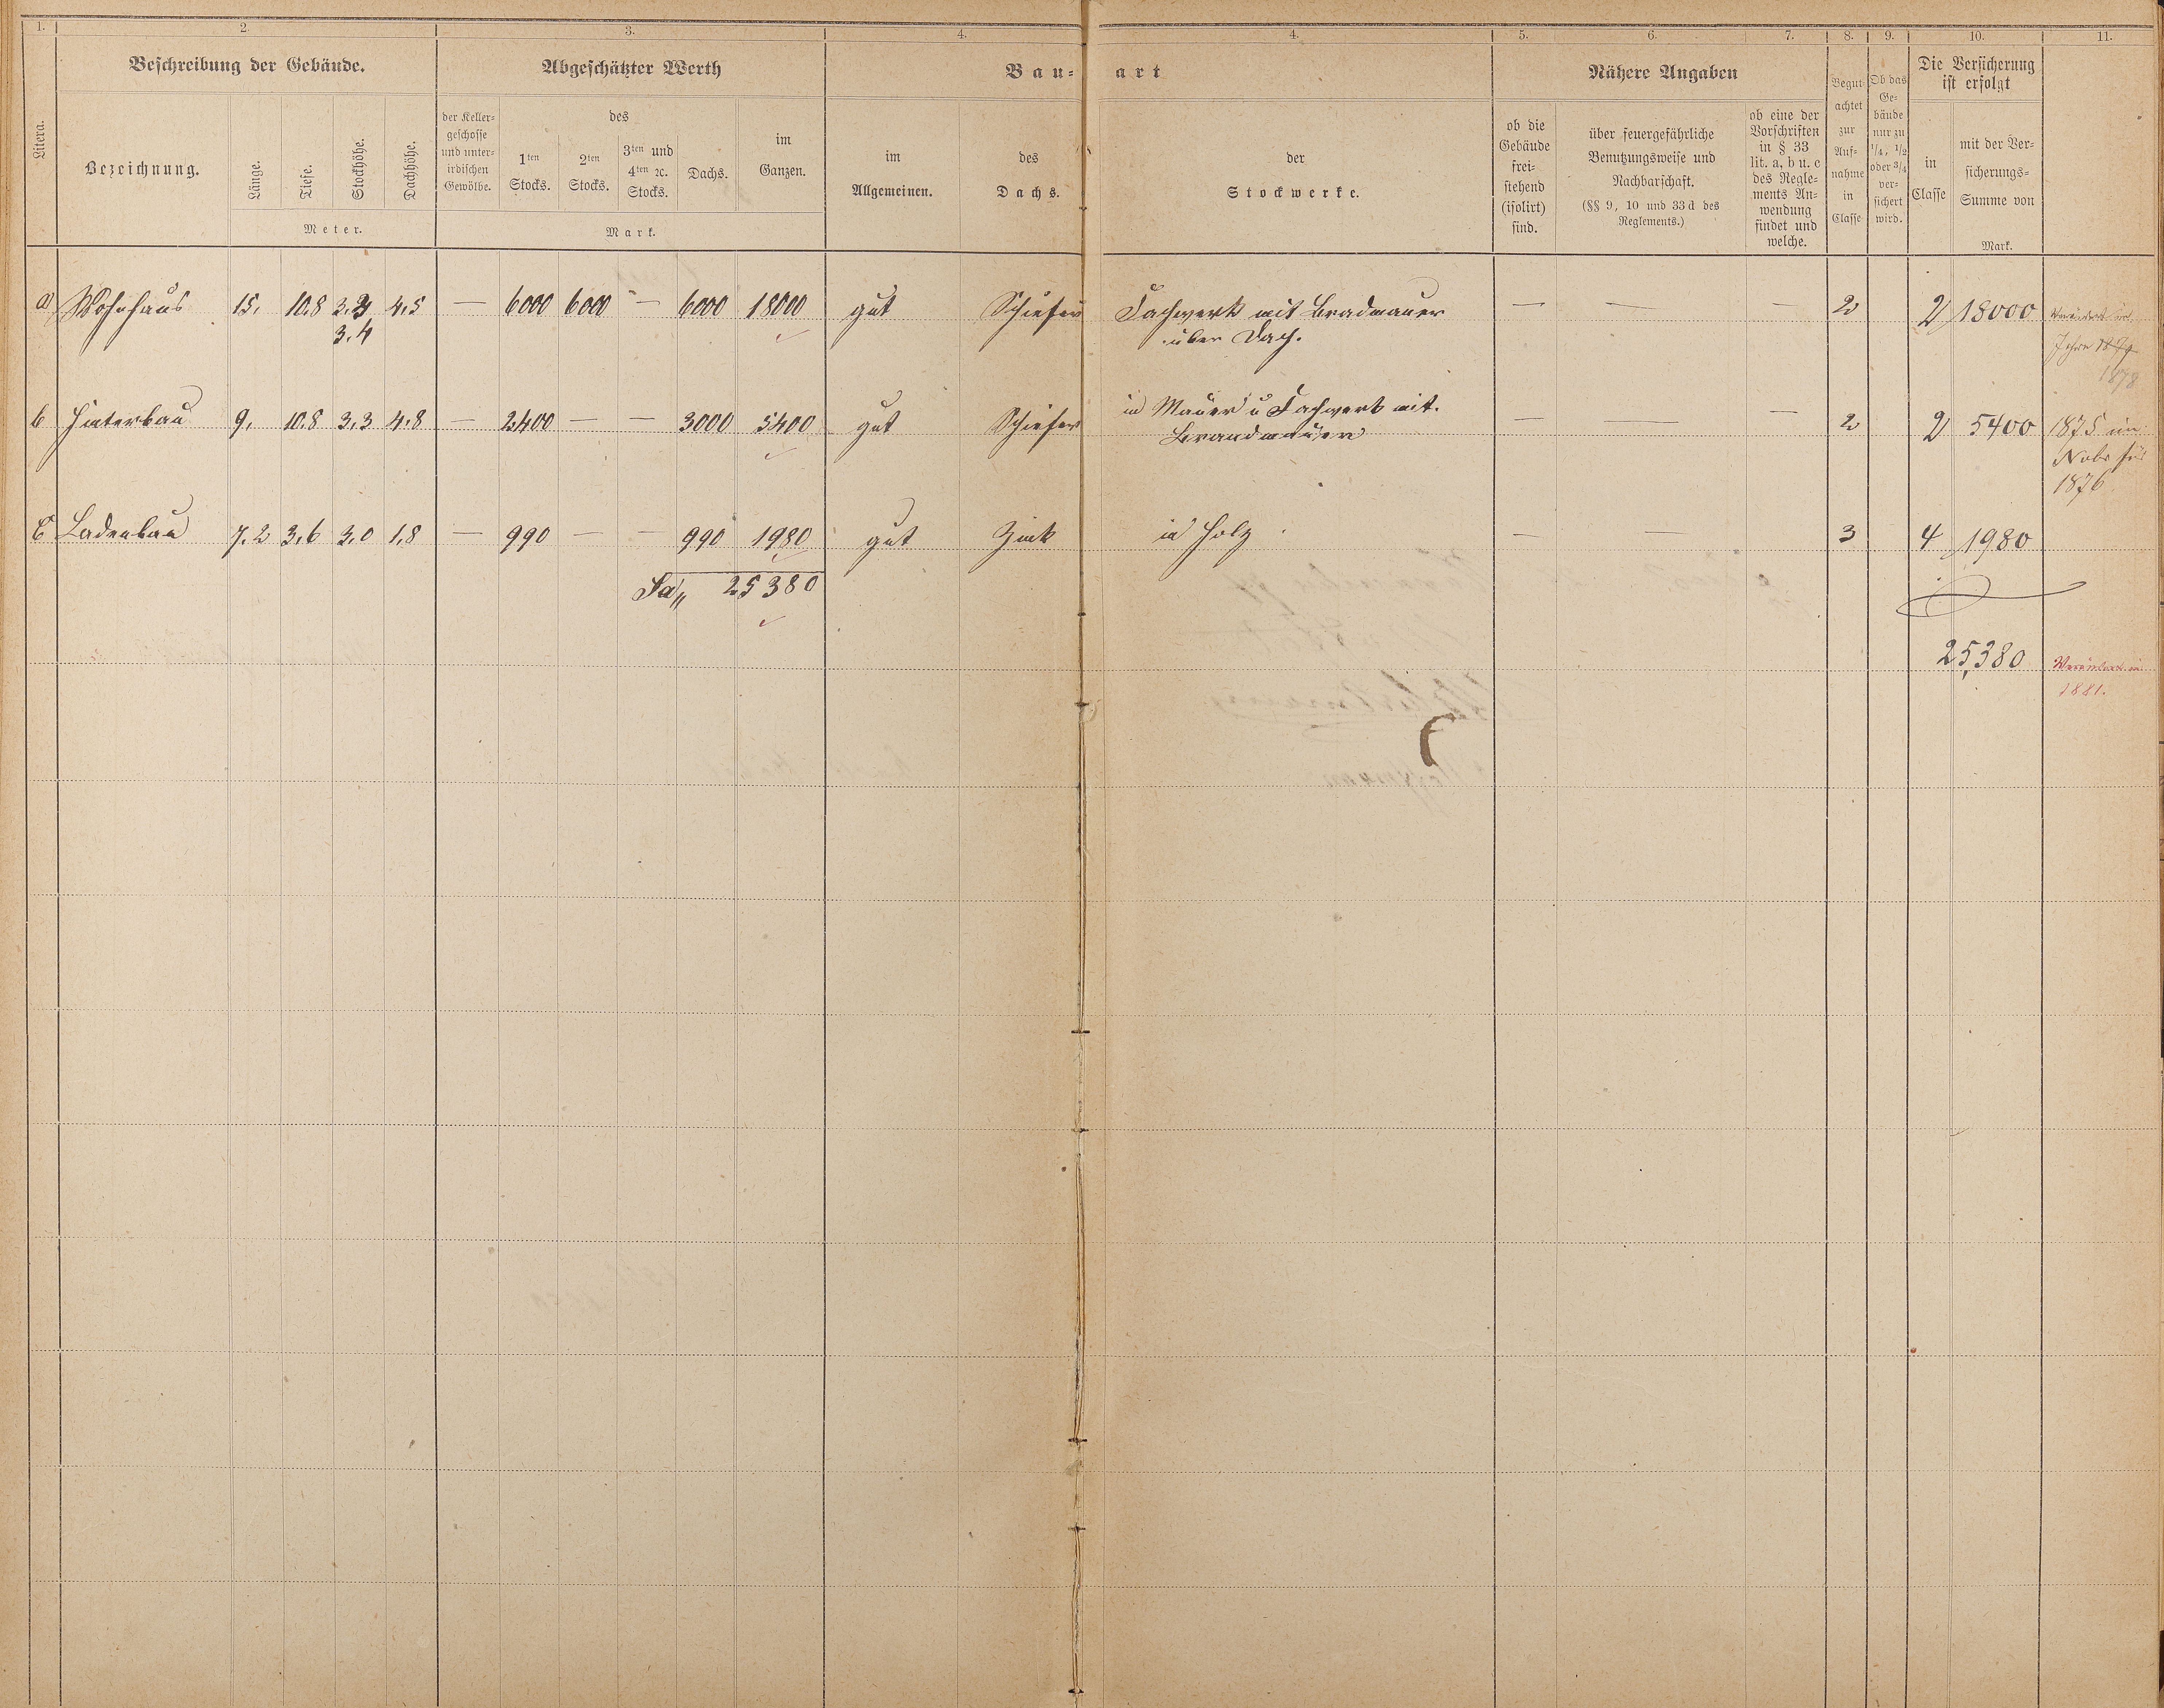 1. 2. 3. 4. 4. 5. 6. 7. 8. 9. 10. 11.
Litera.
Beschreibung der Gebäude.
Bezeichnung.
Länge.
Tiefe.
Stockhöhe.
Dachhöhe.
Meter.
Abgeschätzter Werth
der Keller-
geschosse
und unter-
irdischen
Gewölbe.
des
1ten
Stocks.
2ten
Stocks.
3ten und
4ten ꝛc.
Stocks.
Dachs.
im
Ganzen.
Mark.
Bau- art
im
Allgemeinen.
des
Dachs.
der
Stockwerke.
Nähere Angaben
ob die
Gebäude
frei-
stehend
(isolirt)
sind.
über feuergefährliche
Benutzungsweise und
Nachbarschaft.
(§§ 9, 10 und 33 d des
Reglements.)
ob eine der
Vorschriften
in § 33
lit. a, b u. c
des Regle-
ments An-
wendung
findet und
welche.
Begut
achtet
zur
Auf-
nahme
in
Classe
Ob das
Ge-
bäude
nur zu
1/4, 1/2
oder 3/4
ver-
sichert
wird.
Die Versicherung
ist erfolgt
in
Classe
mit der Ver-
sicherungs-
Summe von
Mark.
a Wohnhaus 15, 10,8 4,5 — 6000 6000 — 6000 18000 gut Schiefer Fachwerk mit Bradmauer — — — 2 2 18000
3,4 über Dach. Jahre
1878
b Hinterbau 9, 10,8 3,3 4,8 — 2400 — — 3000 5400 gut Schiefer in Mauer u Fachwerk mit — — — 2 2 5400 1875 im
Brandmauer Nobr für
1876
c Ladenbau 7,2 3,6 3,0 1,8 — 990 — — 990 1980 gut Zink in Holz — — 3 4 1980
Sa„ 25380
25,380 Verändert in
1881.